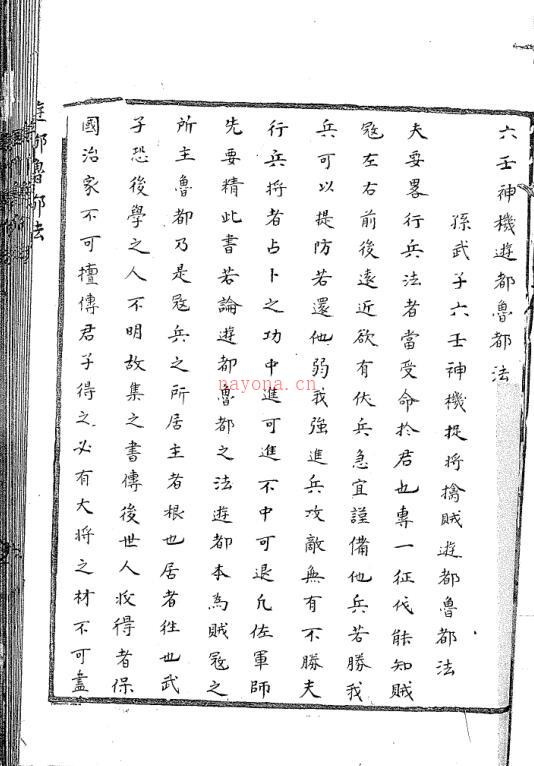 六壬神機遊都魯都法
孫武子六壬神機捉將擒賊遊都魯都法
夫要畧行兵法者當受命於君也專一征伐能知賊
宼左右前後遠近欲有伏兵急宜謹備他兵若勝我
兵可以提防若還他弱我強進兵攻敵無有不勝夫
行兵將者占卜之功中進可進不中可退凢佐軍師
先要精此書若論遊都魯都之法遊都本為賊宼之
所主魯都乃是宼兵之所居主者根也居者徃也武
子恐後學之人不明故集之書傳後世人收得者保
國治家不可擅傳君子得之必有大將之材不可盡
遊都魯都法
nayona.cn